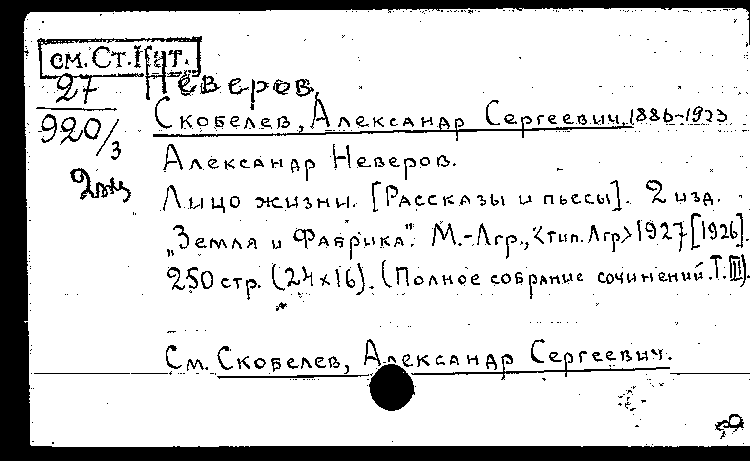 см. Ст. Кат.
27
920/3
2 экз
Неверов.
Скобелев, Александр Сергеевич. 1886-1923
Александр Неверов.
Лицо жизни. [Рассказы и пьесы]. 2 изд.
„Земля и Фабрика". М.-Лгр., <тип. Лгр> 1927 [1926].
250 стр. (24×16). (Полное собрание сочинений. Т. III).
См. Скобелев, Александр Сергеевич.